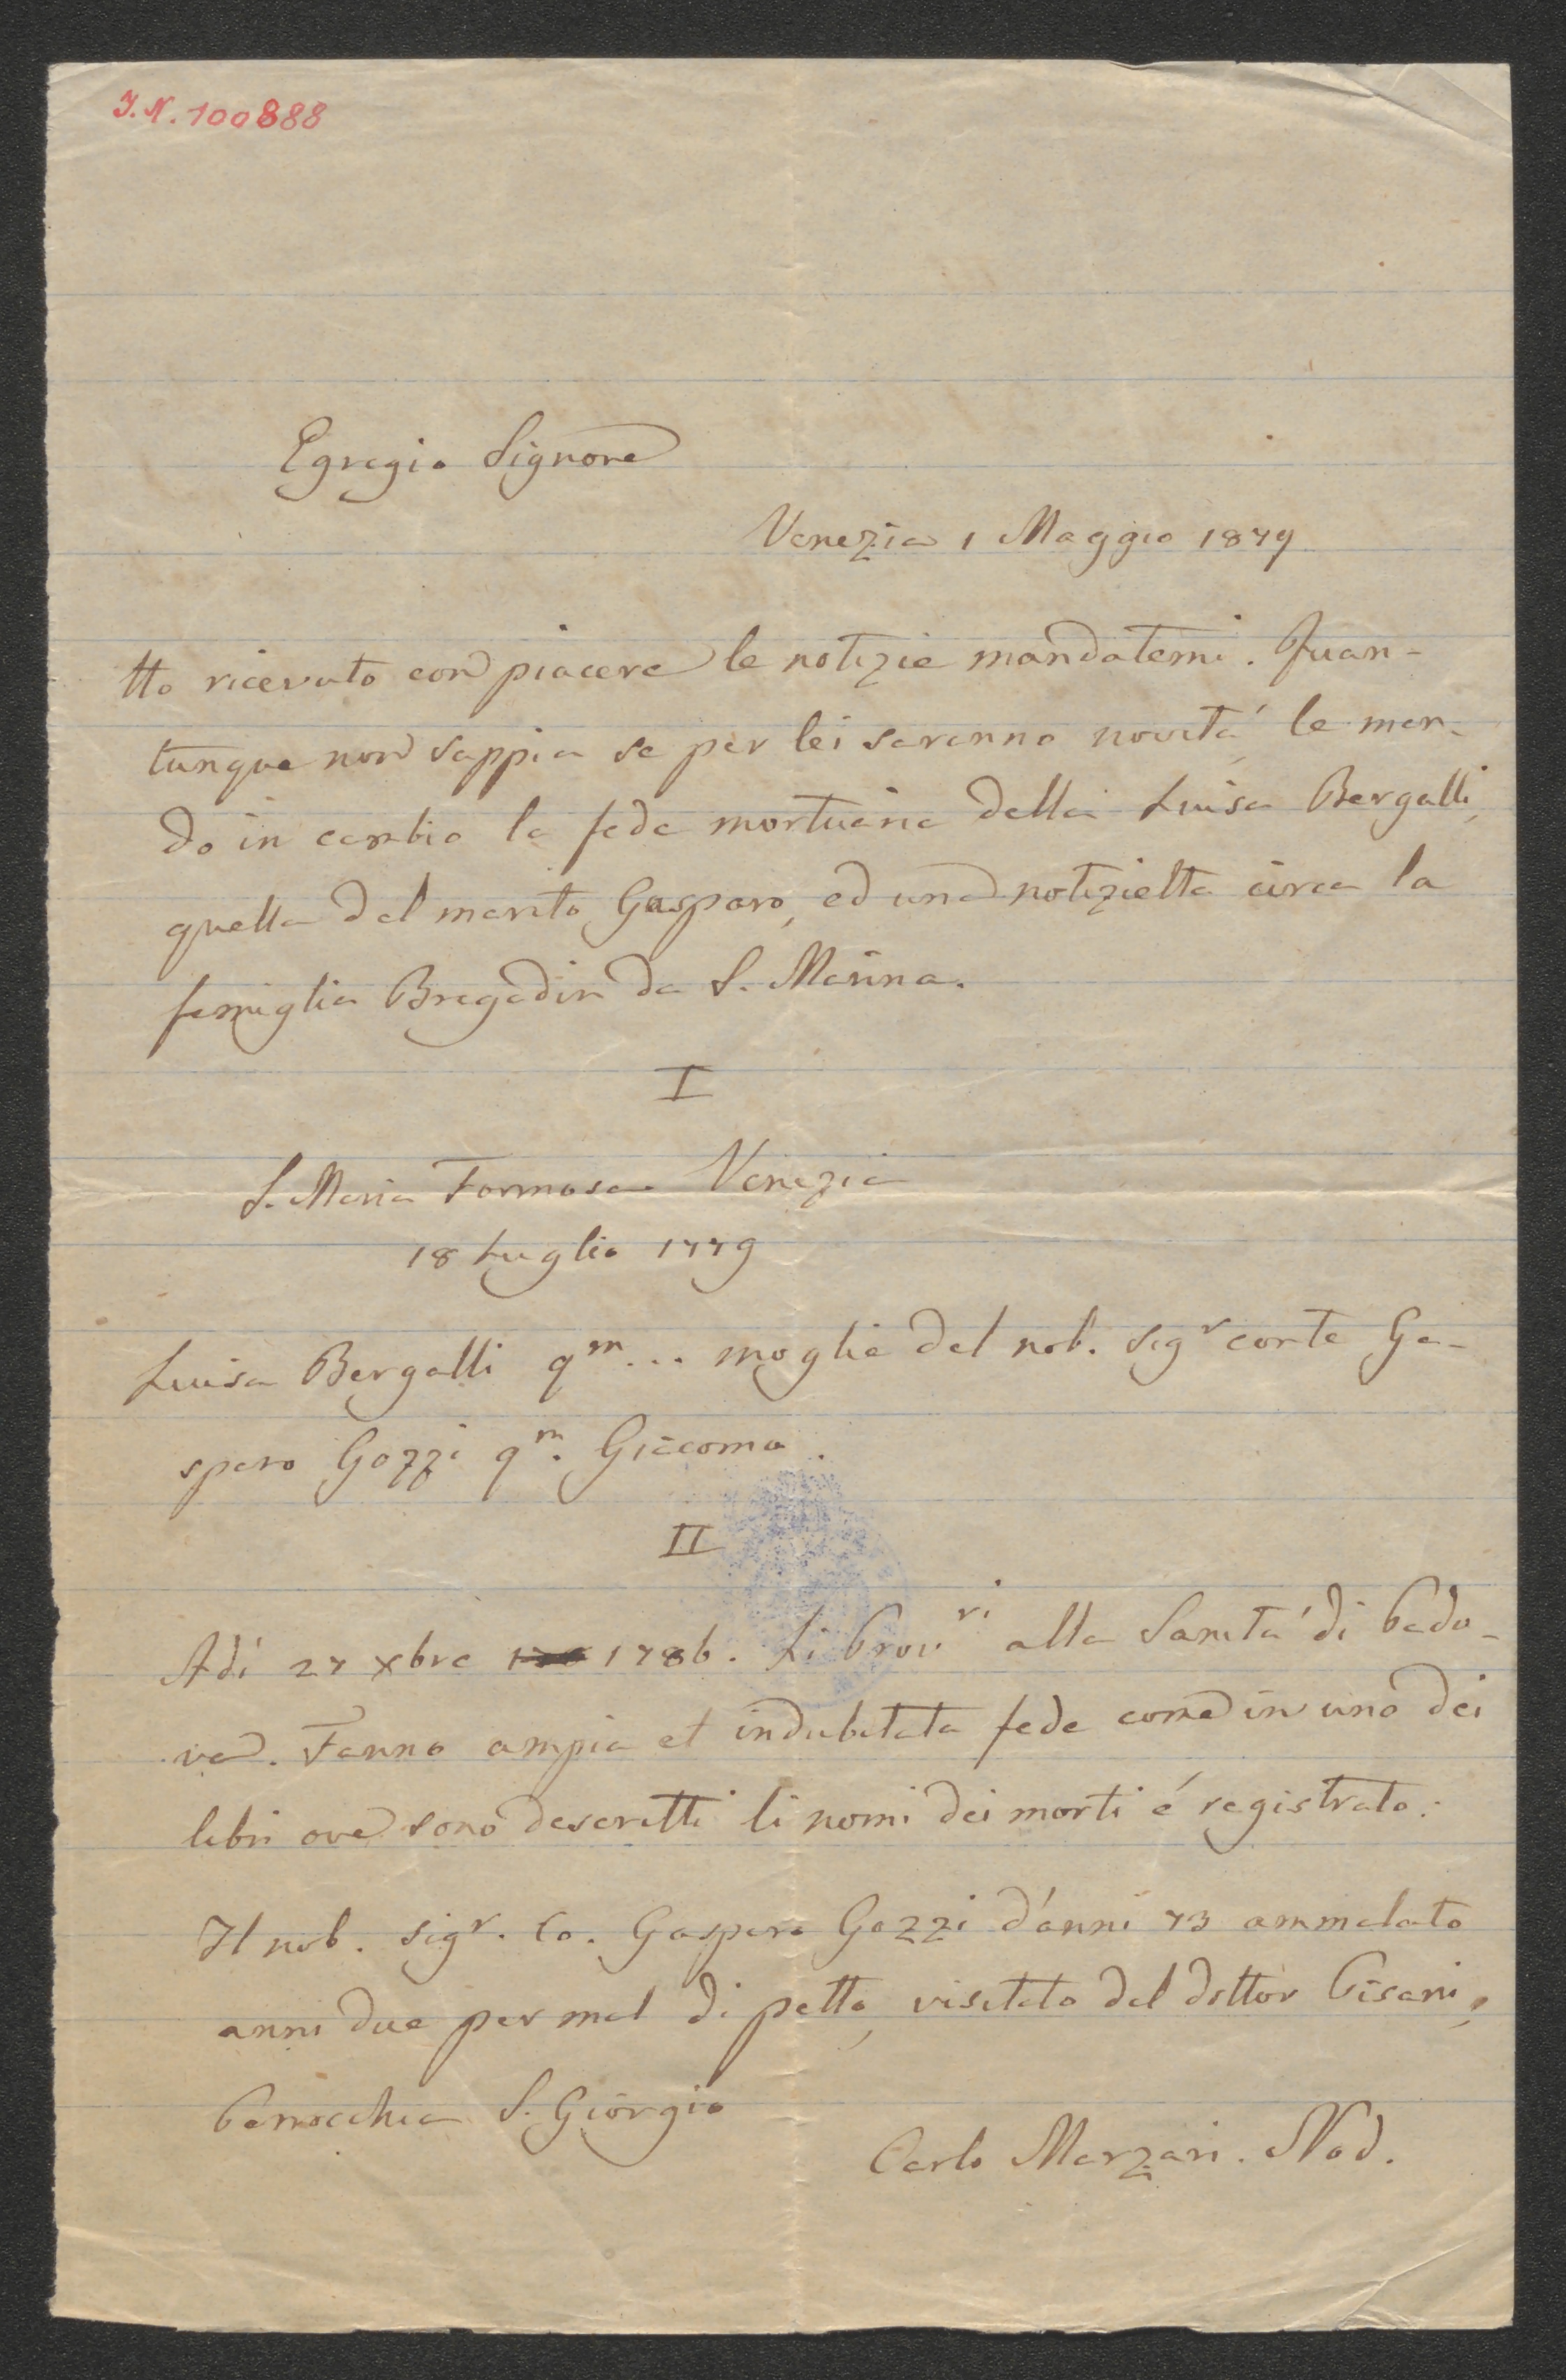 I.N. 100888
Egregio Signore
Venezia 1 Maggio 1879
Ho ricevuto con piacere le notizie mandatemi. Quan-
tunque non sappia se per lei saranno novitá le man-
do in cambio la fede mortuaria della Luisa Bergalli,
quella del marito Gasparo, ed una notizietta circa la
famiglia Bragadin da S. Marina.
I
S. Maria Formosa Venezia
18 Luglio 1779
Luisa Bergalli qm... moglie del nob. sigr conte Ga-
sparo Gozzi qm. Giacomo.
II
Adí 27 Xbre 1786. Li Provri alla Sanitá di Pado-
va. Fanno ampia et indubitata fede come in uno dei
libri ove sono descritti li nomi dei morti é registrato:
Il nob. sigr. Co. Gasparo Gozzi d'anni 73 ammalato
anni due per mal di petto, visitato dal dottor Pisani,
Parrocchia S. Giorgio
Carlo Marzari. Nod.